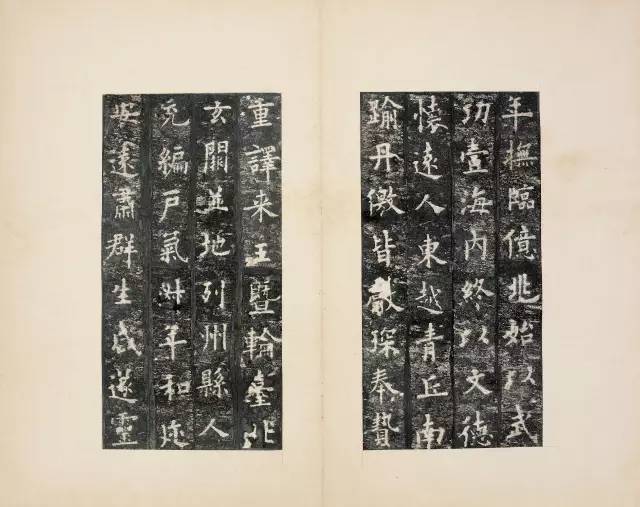 年撫臨億兆始以武
功壹海內終以文德
懷遠人東越青丘南
踰丹儌皆獻琛奉贄
重譯來王暨輪臺北
玄闕並地列州縣人
充編戶氣淑年和迩
安遠肅群生咸遂靈